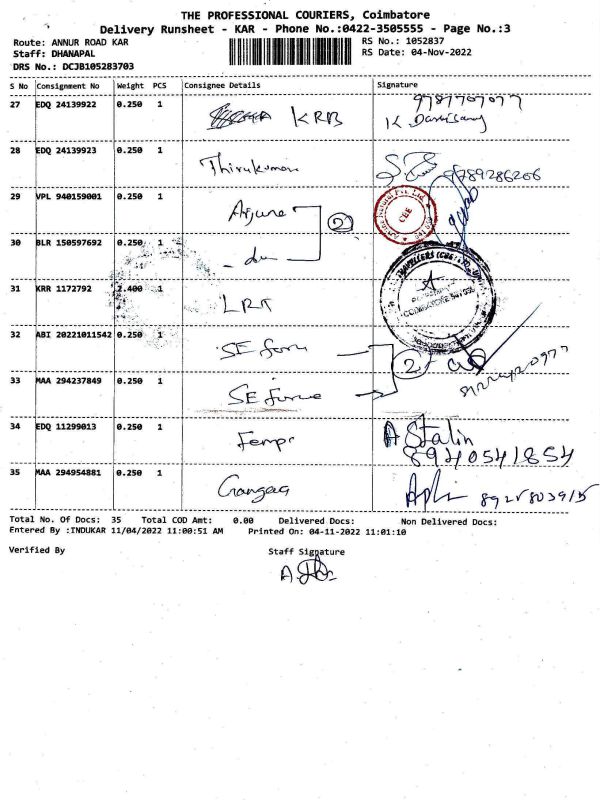 THE PROFESSIONAL COURIERS, Coimbatore
Delivery Runsheet - KAR - Phone No.:0422-3505555 - Page No.:3
Route: ANNUR ROAD KAR
Staff: DHANAPAL
DRS No.: DCJB105283703
RS No.: 1052837
RS Date: 04-Nov-2022
S No Consignment No Weight PCS Consignee Details Signature
27 EDQ 24139922 0.250 1 KRB
28 EDQ 24139923 0.250 1 Thirukumaran 9789286266
29 VPL 940159001 0.250 1 Arjuna
2
30 BLR 150597692 0.250 1 - du -
31 KRR 1172792 2.400 1 LRT
32 ABI 20221011542 0.250 1 SE force
2
33 MAA 294237849 0.250 1 SE force
34 EDQ 11299013 0.250 1 A Stalin
8940541854
35 MAA 294954881 0.250 1
Total No. Of Docs: 35 Total COD Amt: 0.00 Delivered Docs: Non Delivered Docs:
Entered By :INDUKAR 11/04/2022 11:00:51 AM Printed On: 04-11-2022 11:01:10
Verified By Staff Signature